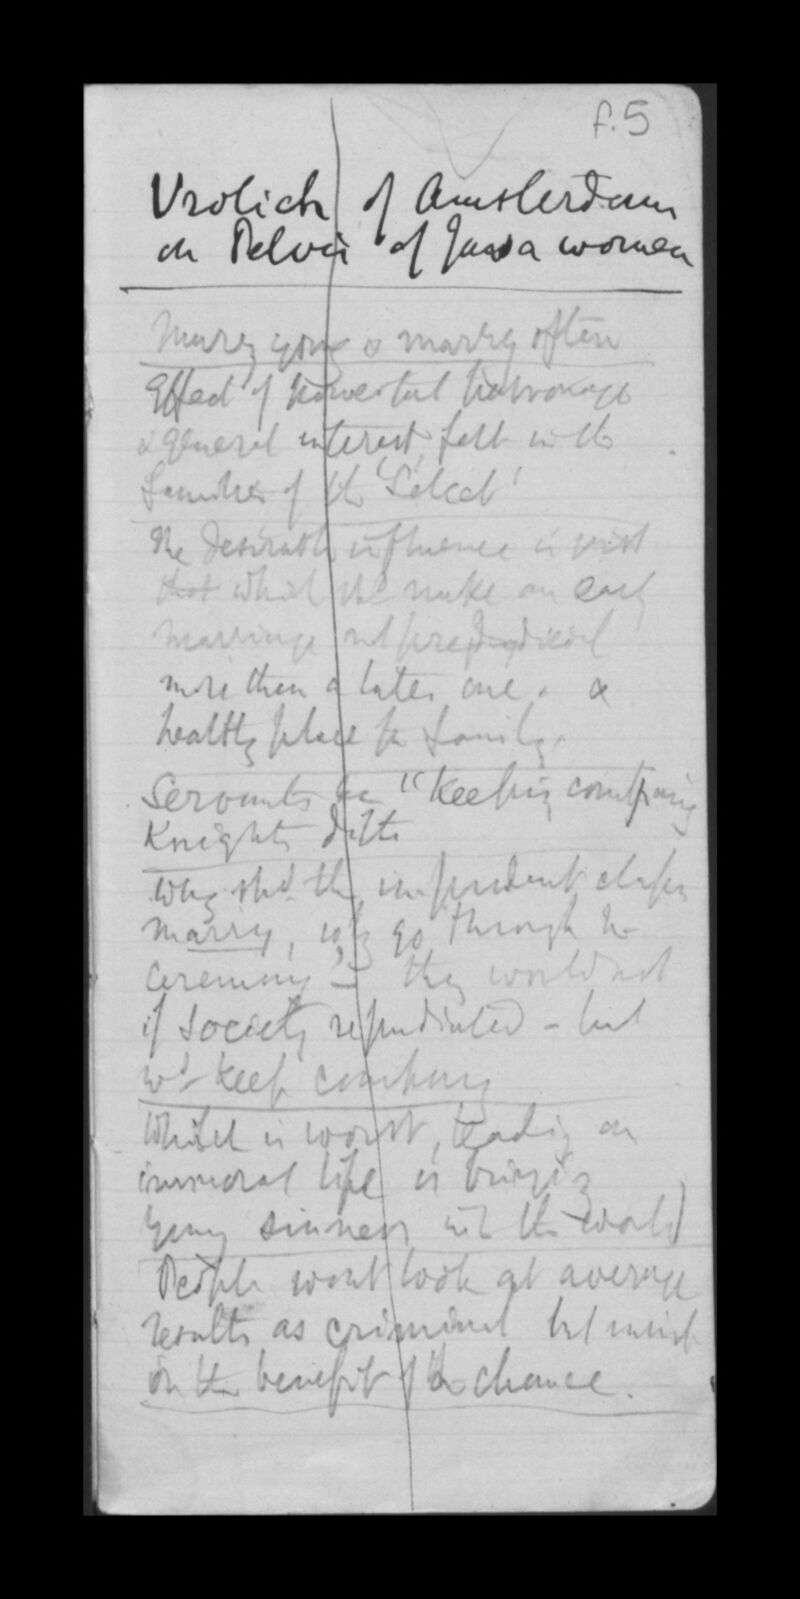 f.5
Vrolich of Amsterdam
on Pelvis of Java women
Marry young & marry often
Effect of powerful patronage
& general interest, felt in the
families of the 'Select'
The desirable influence is just
that which shd make an early
marriage not prejudicial
more than a later one. &
healthy place for family.
Servants for "Keeping company
Knights ditto
Why shd. the, imprudent classes
marry, why go through the
ceremony? - they would not
if Society repudiated - but
wd. keep company
Which is worst, leading an
immoral life or bringing
young sinners into the world
People wont look at average
results as criminal but insist
on the benefit of the chance.